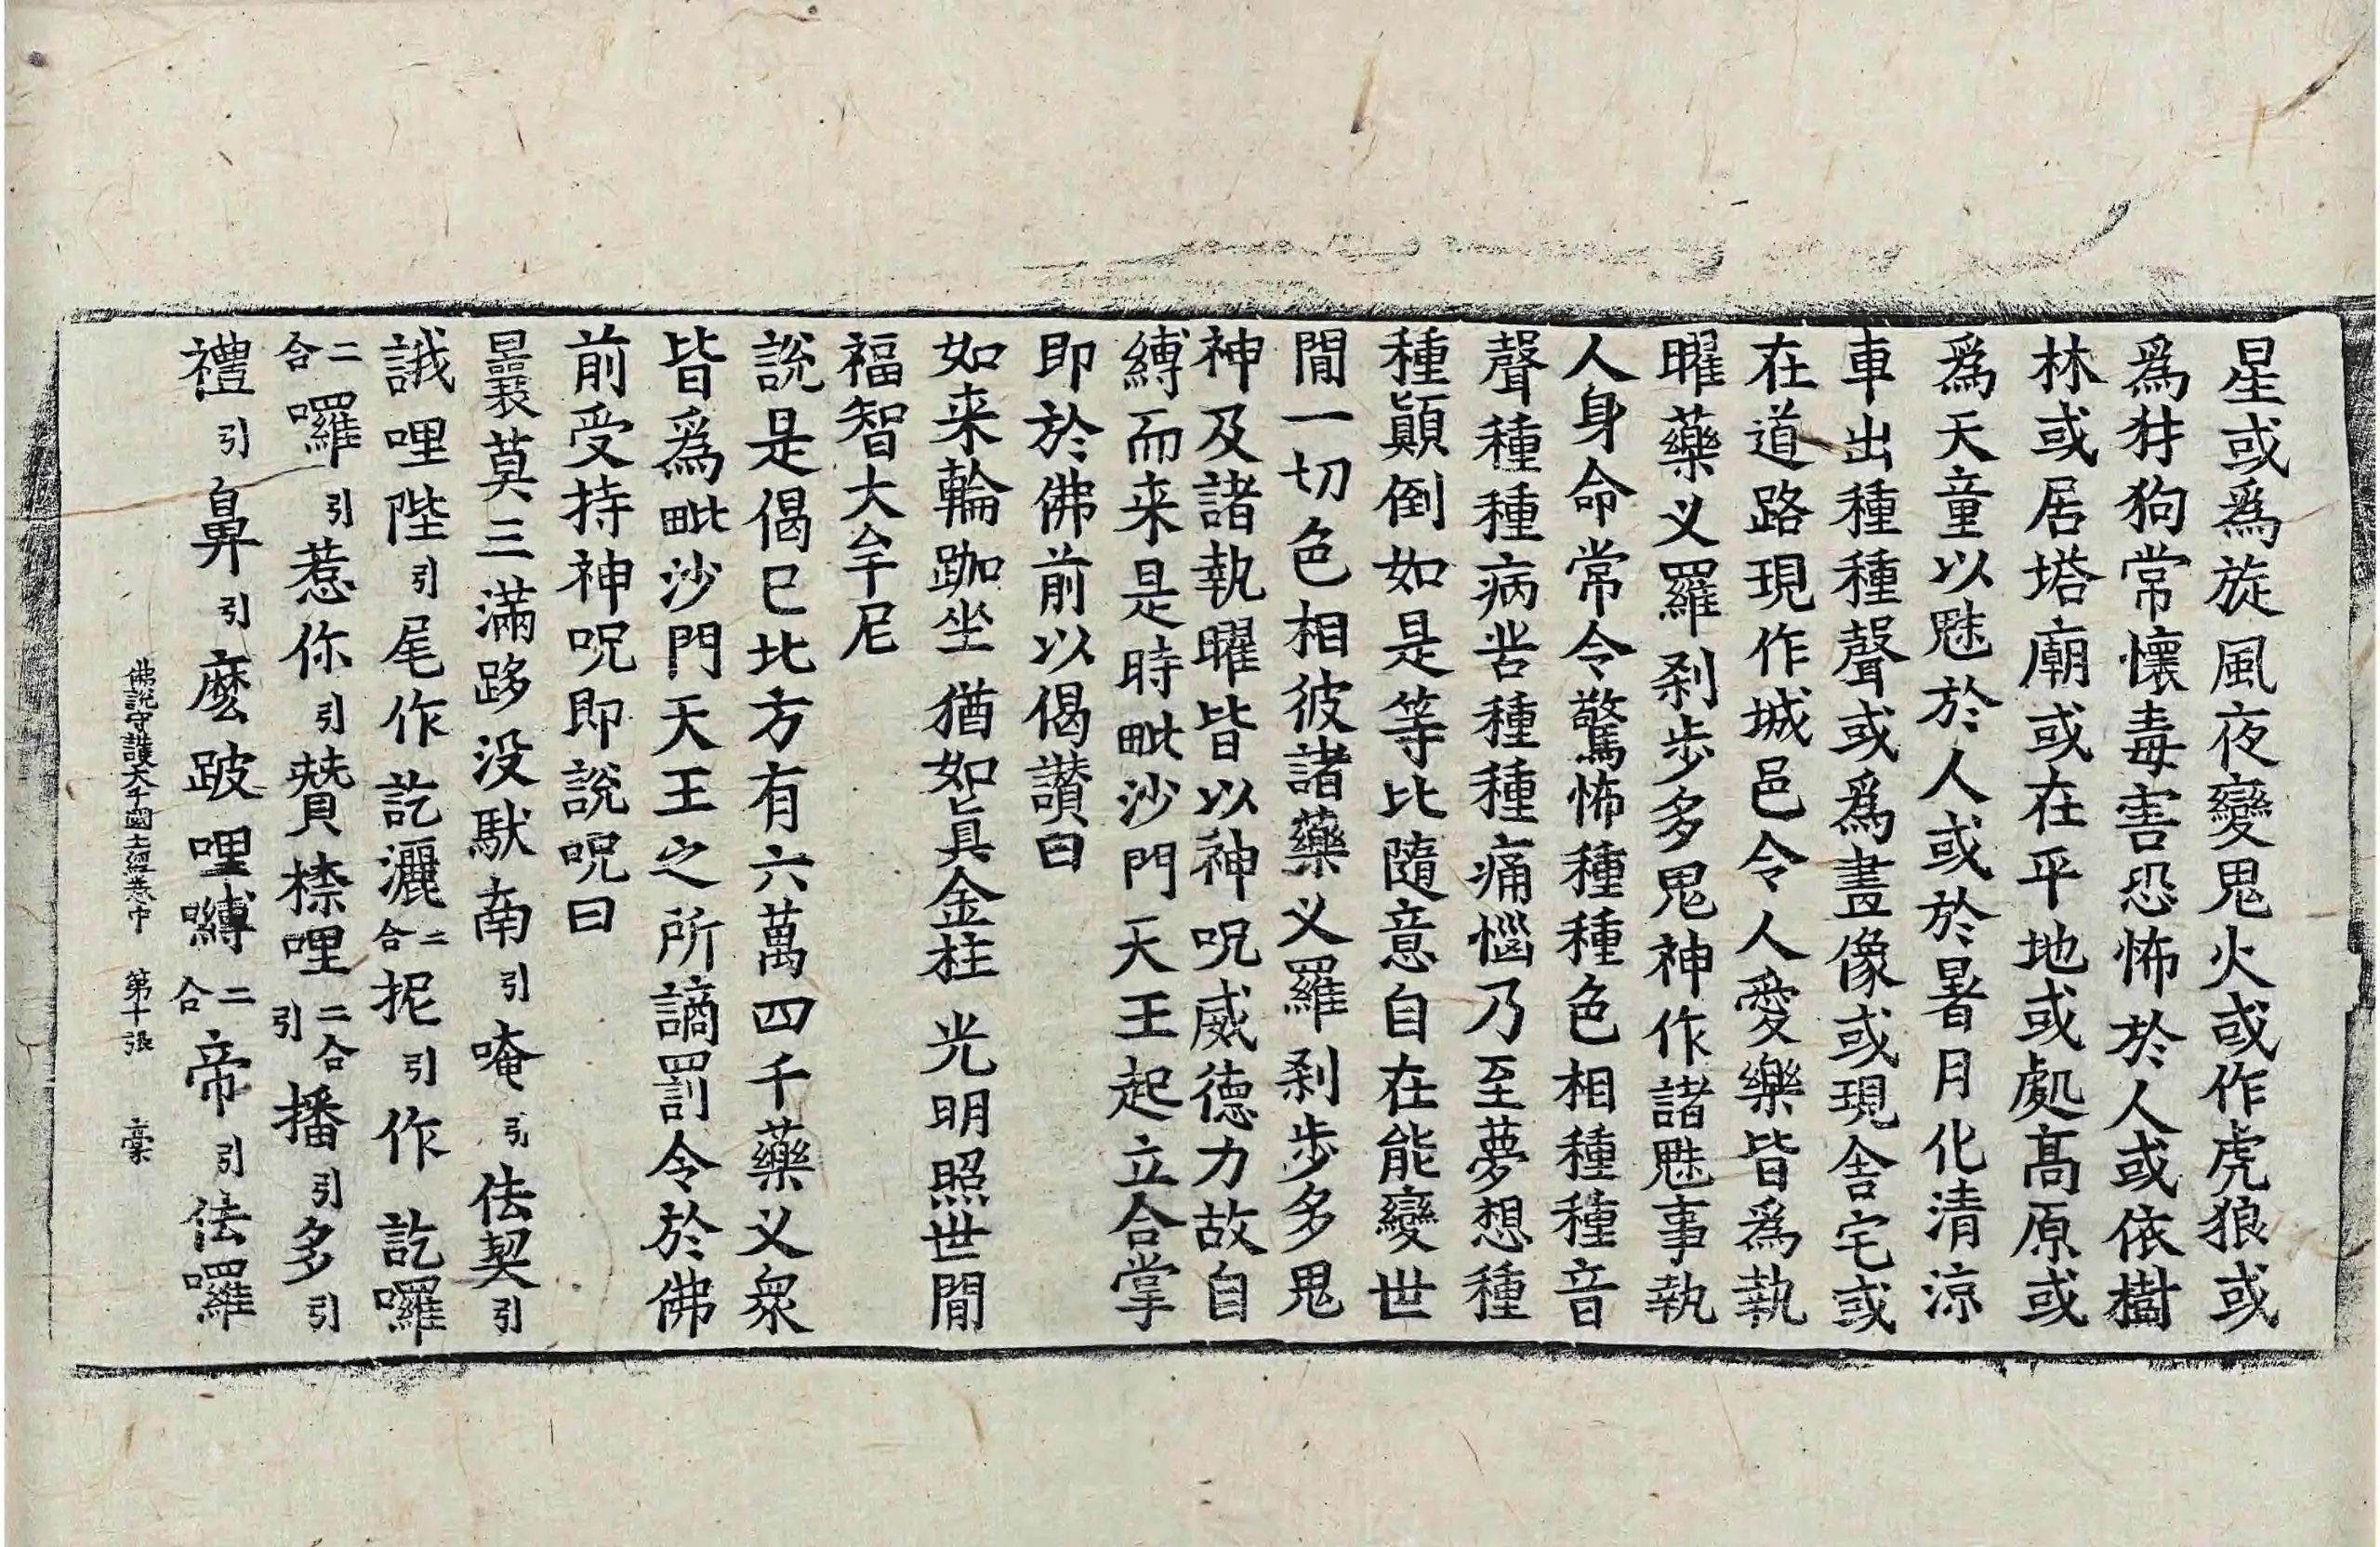 星或爲旋風夜變鬼火或作虎狼或
爲犲狗常懷毒害恐怖於人或依樹
林或居塔廟或在平地或處髙原或
爲天童以魅於人或於暑月化清涼
車出種種聲或爲畫像或現舎宅或
在道路現作城邑令人愛樂皆爲執
曜藥叉羅刹步多鬼神作諸魅事執
人身命常令驚怖種種色相種種音
聲種種病苦種種痛惱乃至夢想種
種顚倒如是等比隨意自在能變世
閒一切色相彼諸藥叉羅刹步多鬼
神及諸執曜皆以神呪威德力故自
縛而来是時毗沙門天王起立合掌
即於佛前以偈讃曰
如来輪跏坐 猶如眞金柱 光明照世閒
福智大牟尼
說是偈已北方有六萬四千藥叉衆
皆爲毗沙門天王之所謫罰令於佛
前受持神呪即說呪曰
曩莫三滿跢没馱南引唵引佉契引
誐哩陛引尾作訖灑二合抳引作訖囉
二合囉引惹你引贊檫哩二合引播引多引
禮引鼻引麽跛哩嚩二合帝引佉囉
佛說守護大千國土經卷中 第十張 稾